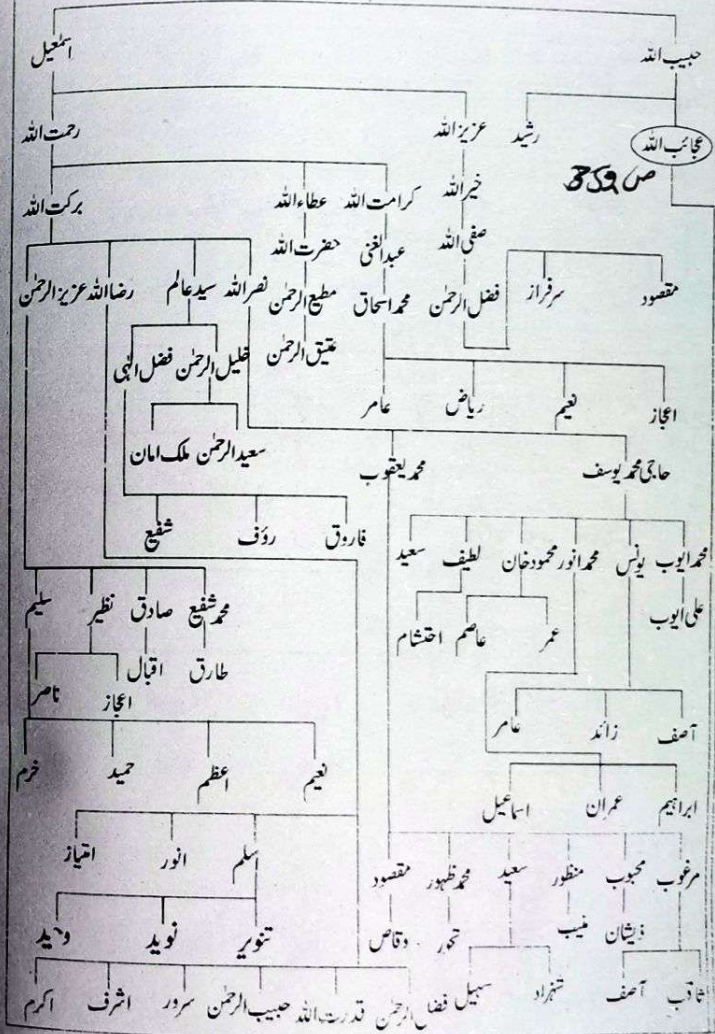 حبیب اللہ اسمٰعیل
عجائب اللہ رشید عزیز اللہ رحمت اللہ
ص
خیر اللہ کرامت اللہ عطاء اللہ برکت اللہ
صفی اللہ عبدالغنی حضرت اللہ
مقصود سرفراز فضل الرحمٰن محمد اسحاق مطیع الرحمٰن نصر اللہ سید عالم رضاء اللہ عزیز الرحمٰن
عتیق الرحمٰن خلیل الرحمٰن فضل الٰہی
اعجاز نعیم ریاض عامر
سعید الرحمٰن ملک امان
حاجی محمد یوسف محمد یعقوب
فاروق رؤف شفیع
محمد ایوب یونس محمد انور محمود خان لطیف سعید
محمد شفیع صادق نظیر سلیم
علی ایوب عمر عاصم احتشام
طارق اقبال اعجاز ناصر
آصف زائد عامر
نعیم اعظم حمید خرم
ابراہیم عمران اسماعیل
اسلم انور امتیاز
مرغوب محبوب منظور سعید محمد ظہور مقصود
ذیشان منیب وقاص
تنویر نوید وحید
ثاقب آصف شہزاد سہیل
فضل الرحمٰن قدرت اللہ حبیب الرحمٰن سرور اشرف اکرم